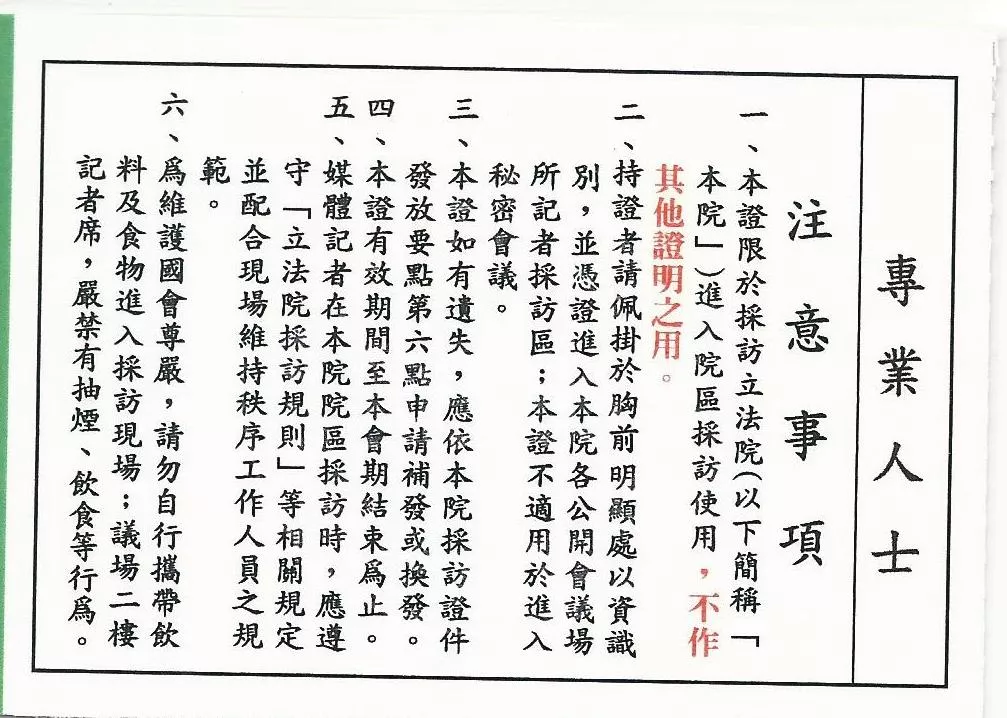 專業人士
注意事項
一、本證限於採訪立法院(以下簡稱「
本院」)進入院區採訪使用，不作
其他證明之用。
二、持證者請佩掛於胸前明顯處以資識
別，並憑證進入本院各公開會議場
所記者採訪區；本證不適用於進入
秘密會議。
三、本證如有遺失，應依本院採訪證件
發放要點第六點申請補發或換發。
四、本證有效期間至本會期結束為止。
五、媒體記者在本院院區採訪時，應遵
守「立法院採訪規則」等相關規定
並配合現場維持秩序工作人員之規
範。
六、爲維護國會尊嚴，請勿自行攜帶飲
料及食物進入採訪現場；議場二樓
記者席，嚴禁有抽煙、飲食等行爲。